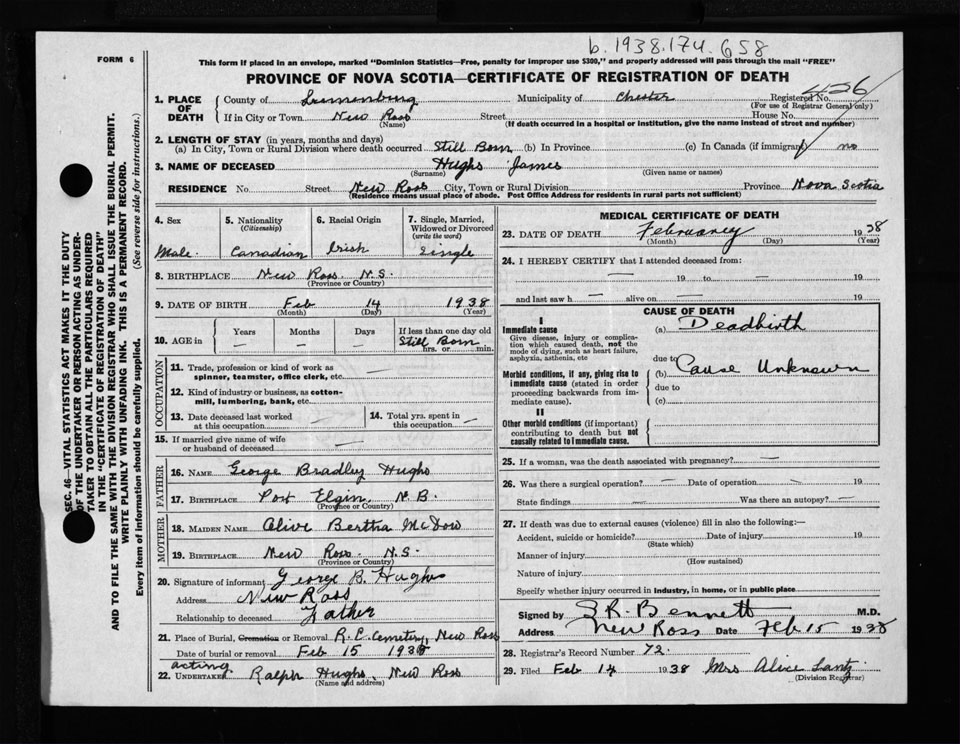 b. 1938.174.658
FORM 6
This form if placed in an envelope, marked "Dominion Statistics—Free, penalty for improper use $300," and properly addressed will pass through the mail "FREE"
PROVINCE OF NOVA SCOTIA—CERTIFICATE OF REGISTRATION OF DEATH
426
1. PLACE OF DEATH
County of Lunenburg Municipality of Chester Registered No.
(For use of Registrar General only)
If in City or Town New Ross Street House No.
(Name) (If death occurred in a hospital or institution, give the name instead of street and number)
2. LENGTH OF STAY (in years, months and days)
(a) In City, Town or Rural Division where death occurred Still Born (b) In Province (c) In Canada (if immigrant) no
3. NAME OF DECEASED Hughs James
(Surname) (Given name or names)
RESIDENCE No Street New Ross City, Town or Rural Division Province Nova Scotia
(Residence means usual place of abode. Post Office Address for residents in rural parts not sufficient)
4. Sex 5. Nationality (Citizenship) 6. Racial Origin 7. Single, Married, Widowed or Divorced (write the word)
Male. Canadian Irish Single
8. BIRTHPLACE New Ross N.S.
(Province or Country)
9. DATE OF BIRTH Feb 14 1938
(Month) (Day) (Year)
10. AGE in Years Months Days If less than one day old
— — — Still Born
hrs. or min.
OCCUPATION
11. Trade, profession or kind of work as spinner, teamster, office clerk, etc. —
12. Kind of industry or business, as cotton-mill, lumbering, bank, etc.
13. Date deceased last worked at this occupation — 14. Total yrs. spent in this occupation —
15. If married give name of wife or husband of deceased —
FATHER
16. NAME George Bradley Hughs
17. BIRTHPLACE Port Elgin N.B.
(Province or Country)
MOTHER
18. MAIDEN NAME Olive Bertha McDow
19. BIRTHPLACE New Ross N.S.
(Province or Country)
20. Signature of informant George B. Hughs
Address New Ross
Relationship to deceased Father
21. Place of Burial, Cremation or Removal R.C. Cemetery, New Ross
Date of burial or removal Feb 15 1938
acting
22. UNDERTAKER Ralph Hughs, New Ross
(Name and address)
MEDICAL CERTIFICATE OF DEATH
23. DATE OF DEATH February 1938
(Month) (Day) (Year)
24. I HEREBY CERTIFY that I attended deceased from:
— 19 to — 19
and last saw h — alive on — 19
CAUSE OF DEATH
I
Immediate cause (a) Deadbirth
Give disease, injury or complication which caused death, not the mode of dying, such as heart failure, asphyxia, asthenia, etc
due to
Morbid conditions, if any, giving rise to immediate cause (stated in order proceeding backwards from immediate cause).
(b) Cause Unknown
due to
(c)
II
Other morbid conditions (if important) contributing to death but not causally related to immediate cause.
25. If a woman, was the death associated with pregnancy? —
26. Was there a surgical operation? — Date of operation —
State findings — Was there an autopsy? —
27. If death was due to external causes (violence) fill in also the following:—
Accident, suicide or homicide? Date of injury 19
(State which)
Manner of injury
(How sustained)
Nature of injury
Specify whether injury occurred in industry, in home, or in public place
Signed by S.R. Bennett M.D.
Address New Ross Date Feb 15 1938
28. Registrar's Record Number 72.
29. Filed Feb 14 1938 Mrs Alice Lantz
(Division Registrar)
SEC. 46—VITAL STATISTICS ACT MAKES IT THE DUTY
OF THE UNDERTAKER OR PERSON ACTING AS UNDER-
TAKER TO OBTAIN ALL THE PARTICULARS REQUIRED
IN THE "CERTIFICATE OF REGISTRATION OF DEATH"
AND TO FILE THE SAME WITH THE DIVISION REGISTRAR WHO SHALL ISSUE THE BURIAL PERMIT.
WRITE PLAINLY WITH UNFADING INK. THIS IS A PERMANENT RECORD.
Every item of information should be carefully supplied. (See reverse side for instructions.)